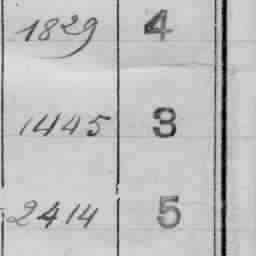 1829 4
1445 3
2414 5